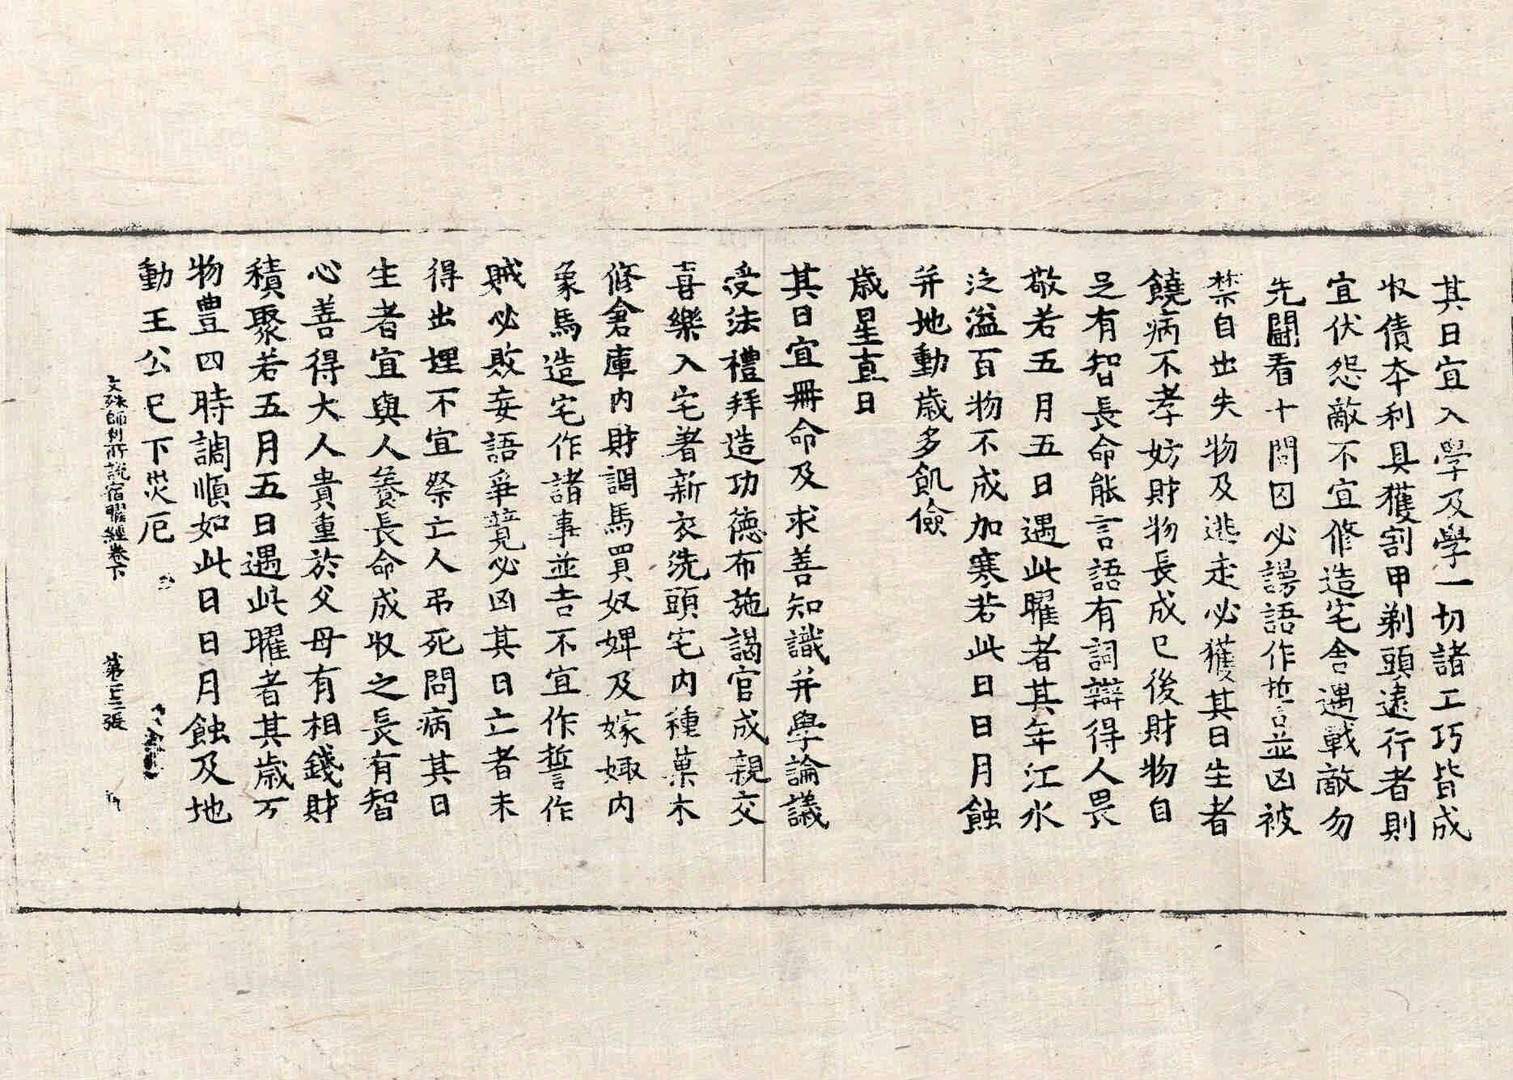 其日宜入學及學一切諸工巧皆成
收債本利具獲割甲剃頭遠行者則
宜伏怨敵不宜修造宅舍遇戰敵勿
先鬪看十問囚必謗語作誓並凶被
禁自出失物及逃走必獲其日生者
饒病不孝妨財物長成已後財物自
足有智長命能言語有詞辯得人畏
敬若五月五日遇此曜者其年江水
泛溢百物不成加寒若此日日月蝕
并地動歲多飢儉
歲星直日
其日宜冊命及求善知識并學論議
受法禮拜造功德布施謁官成親交
喜樂入宅著新衣洗頭宅內種菓木
修倉庫內財調馬買奴婢及嫁娵內
象馬造宅作諸事並吉不宜作誓作
賊必敗妄語爭競必凶其日亡者未
得出埋不宜祭亡人弔死問病其日
生者宜與人養長命成收之長有智
心善得大人貴重於父母有相錢財
積聚若五月五日遇此曜者其歲万
物豊四時調順如此日日月蝕及地
動王公已下災厄
文殊師利所説宿曜經卷下 第三張